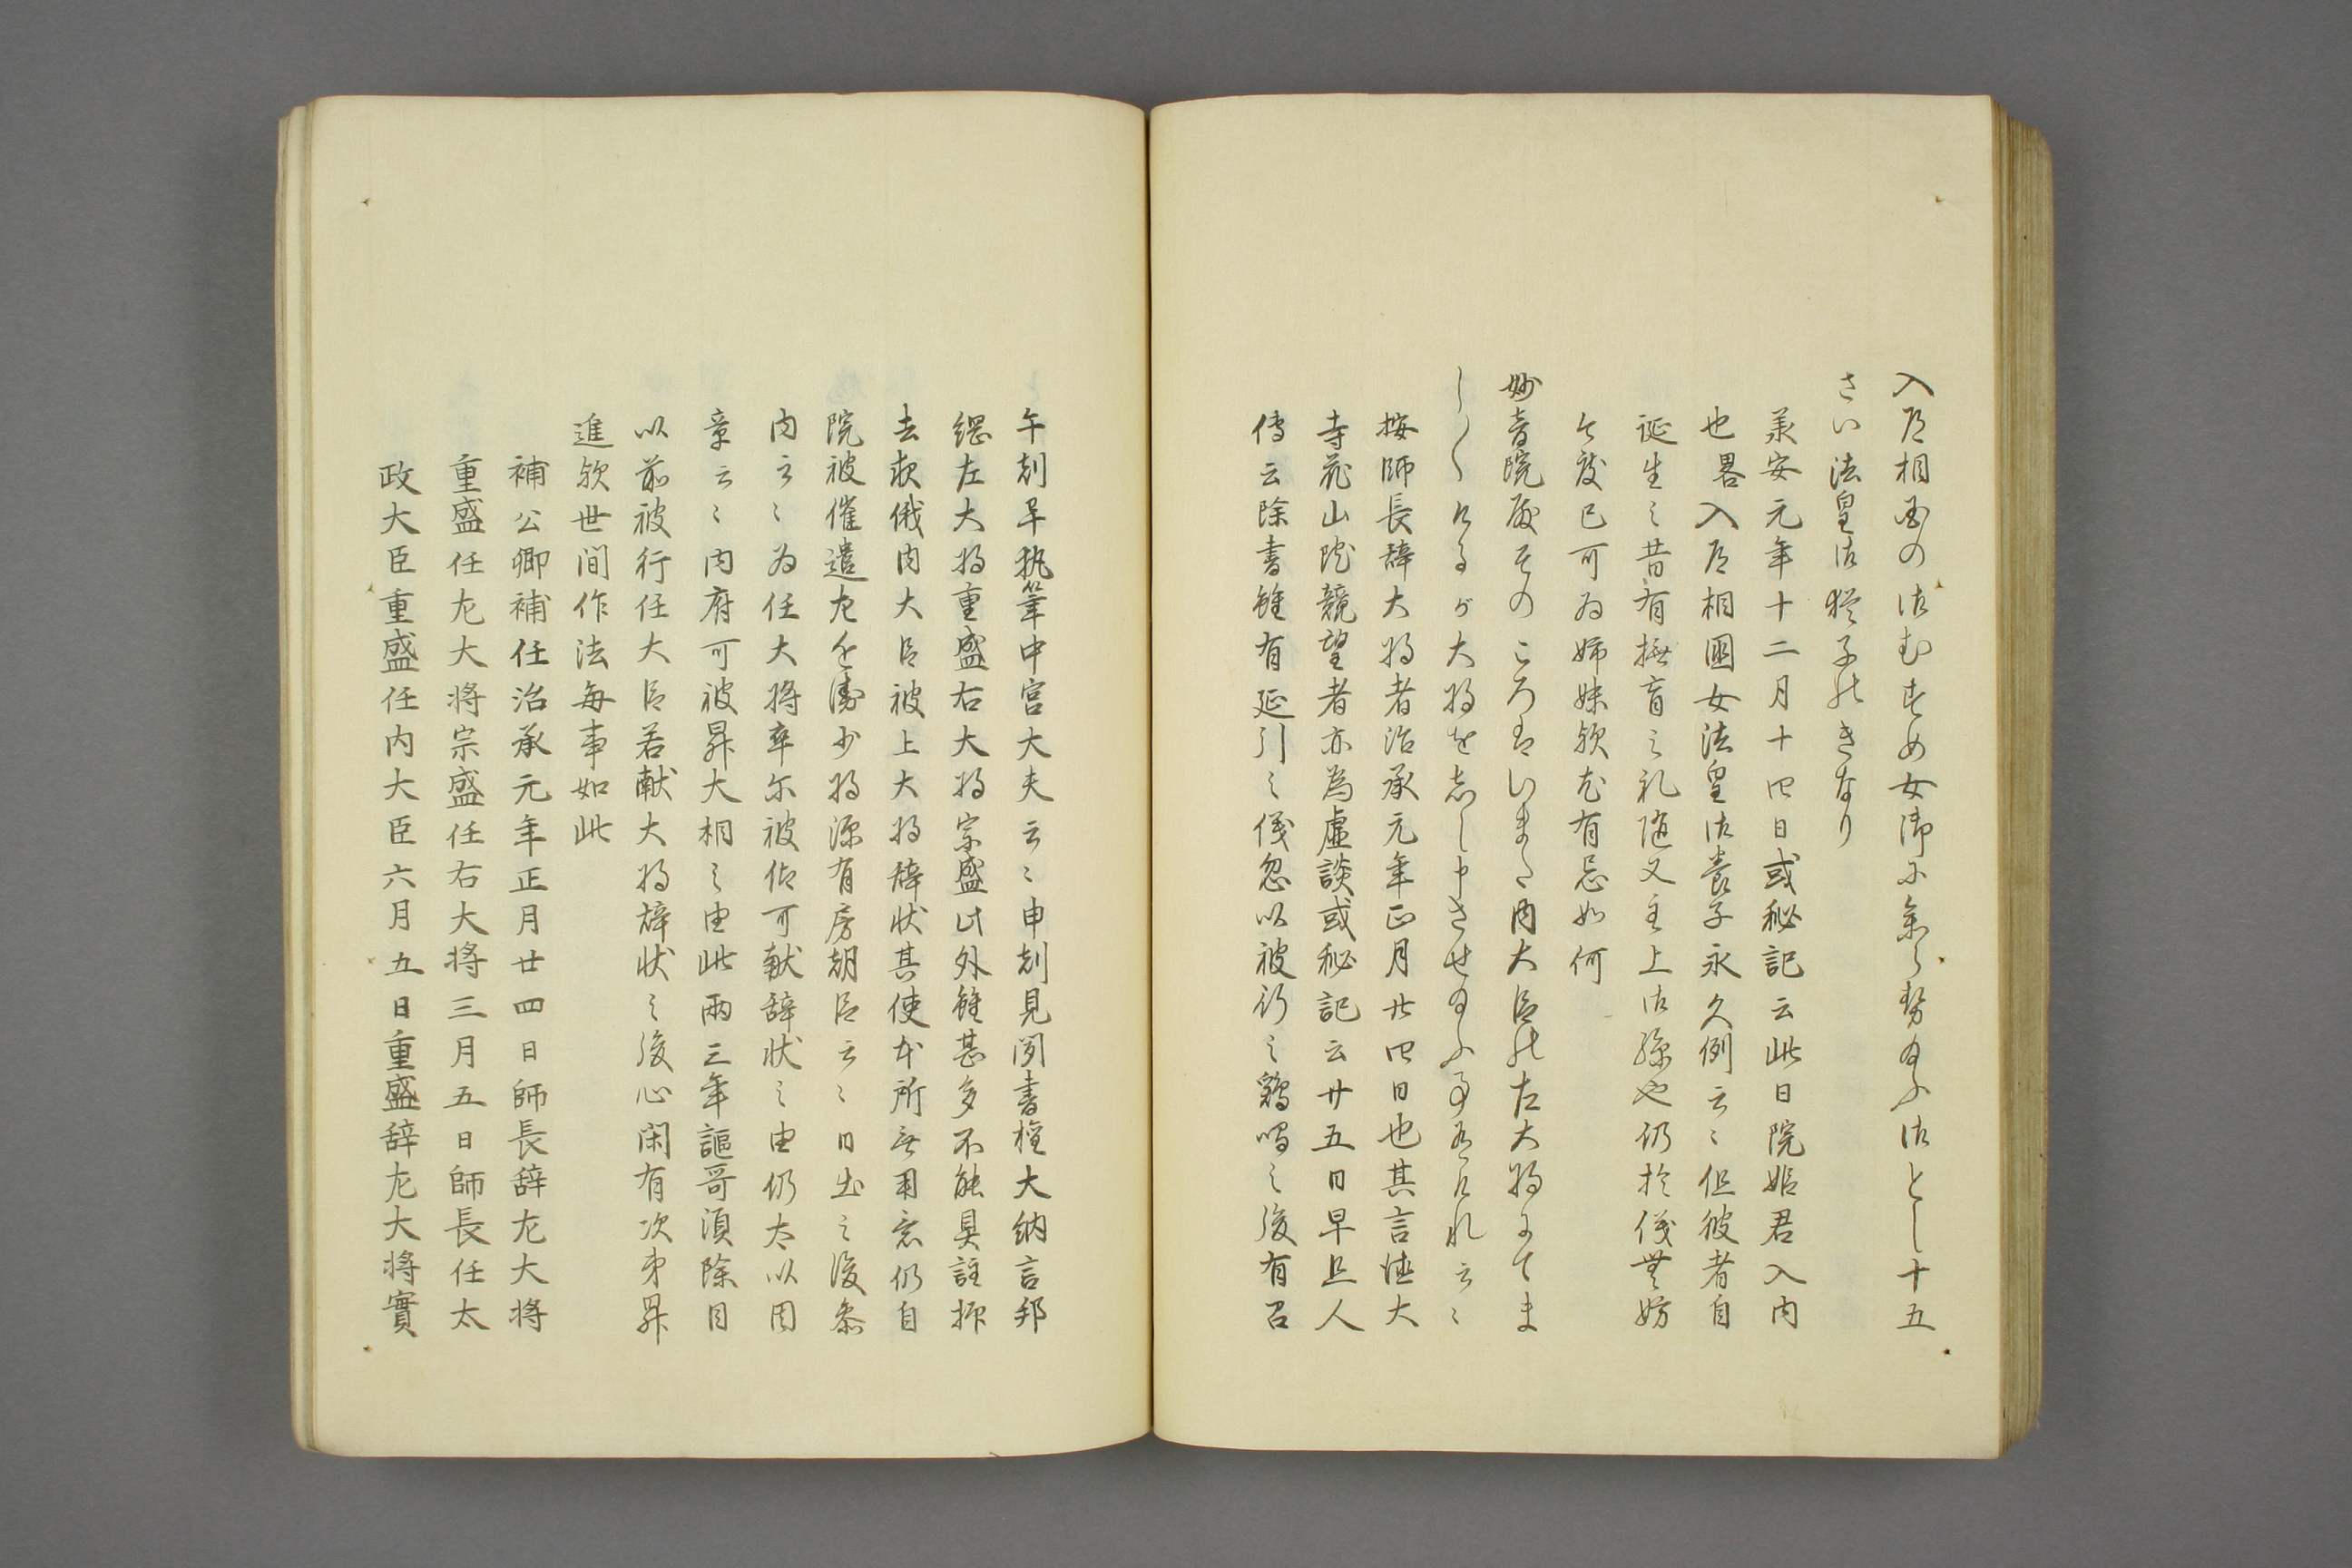 入道相国の御むすめ女御に参らせ給ふ御とし十五
さい法皇御猶子のきなり
承安元年十二月十四日或秘記云此日院姫君入内
也畧入道相國女法皇御養子永久例云〻但彼者自
誕生之昔有撫育之礼随又主上御孫也仍於儀無妨
今度已可為姉妹歟尤有忌如何
妙音院殿そのころはいまた内大臣の左大将にてま
し〱けるが大将を志し申させ給ふ事有けれ云〻
按師長辞大将者治承元年正月廿四日也其言徳大
寺花山院競望者亦為虚談或秘記云廿五日早旦人
傳云除書雖有延引之儀忽以被行之鶏鳴之後有召
午刻早執筆中宮大夫云〻申刻見聞書権大納言邦
綱左大将重盛右大将宗盛此外雖甚多不能具註抑
去夜俄内大臣被上大将辞状其使本所無用意仍自
院被催遣左近衛少将源有房朝臣云〻日出之後参
内云〻為任大将卒尓被仰可献辞状之由仍太以周
章云〻内府可被昇大相之由此両三年謳哥須除目
以前被行任大臣若献大将辞状之後心閑有次第昇
進歟世間作法毎事如此
補公卿補任治承元年正月廿四日師長辞左大将
重盛任左大将宗盛任右大将三月五日師長任太
政大臣重盛任内大臣六月五日重盛辞左大将實